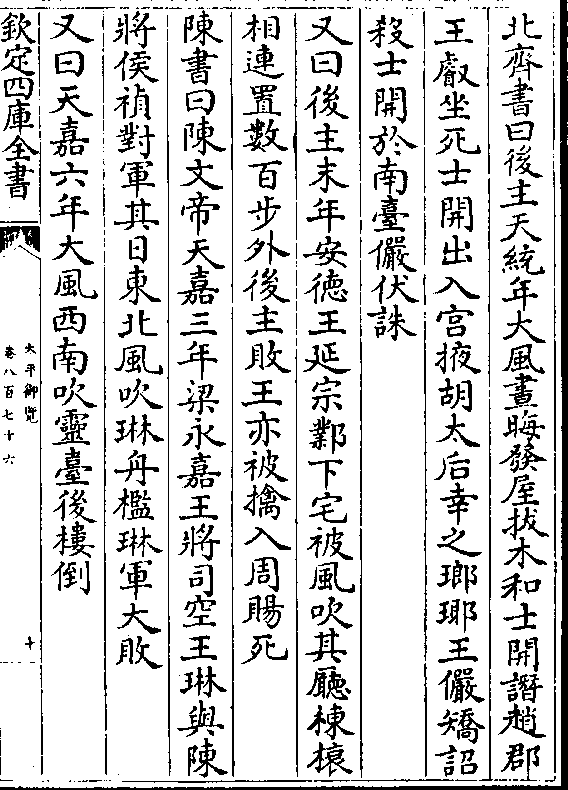 北齊書曰後主天統年大風晝晦發屋拔木和士開譖趙郡
王叡坐死士開出入宮掖胡太后幸之瑯琊王儼矯詔
殺士開於南臺儼伏誅
又曰後主末年安德王延宗鄴下宅被風吹其廳棟榱
相連置數百步外後主敗王亦被擒入周賜死
陳書曰陳文帝天嘉三年梁永嘉王將司空王琳與陳
將侯禎對軍其日東北風吹琳舟檻琳軍大敗
又曰天嘉六年大風西南吹靈臺後樓倒
欽定四庫全書
太平御覽
卷八百七十六
十